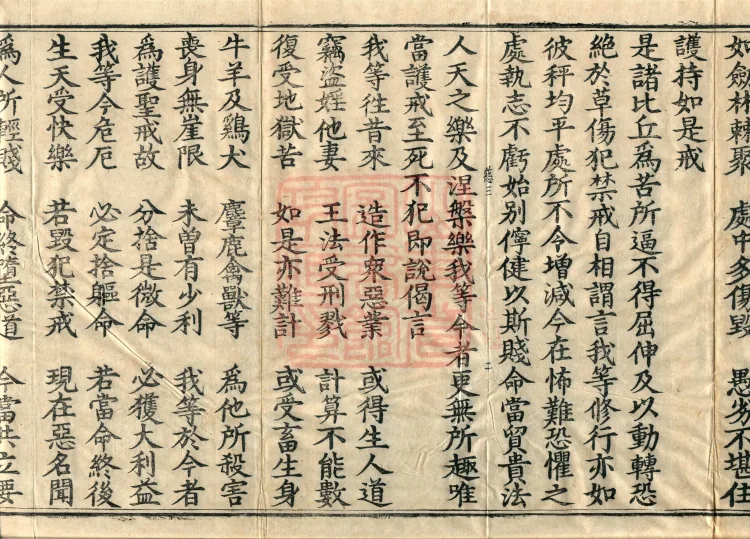 如劒林棘聚　處中多傷毀　愚劣不堪任
護持如是戒
是諸比丘爲苦所逼不得屈伸及以動轉恐
絶於草傷犯禁戒自相謂言我等修行亦如
彼秤均平處所不令增減今在怖難恐懼之
處執志不虧始別儜健以斯賤命當貿貴法
人天之樂及涅槃樂我等今者更無所趣唯
慈三　二
當護戒至死不犯即說偈言
我等往昔來　造作衆惡業　或得生人道
竊盜婬他妻　王法受刑戮　計算不能數
復受地獄苦　如是亦難計　或受畜生身
牛羊及鷄犬　麞鹿禽獸等　爲他所殺害
喪身無崖限　未曾有少利　我等於今者
爲護聖戒故　分捨是微命　必獲大利益
我等今危厄　必定捨軀命　若當命終後
生天受快樂　若毀犯禁戒　現在惡名聞
爲人所輕賤　命終墮惡道　今當共立要